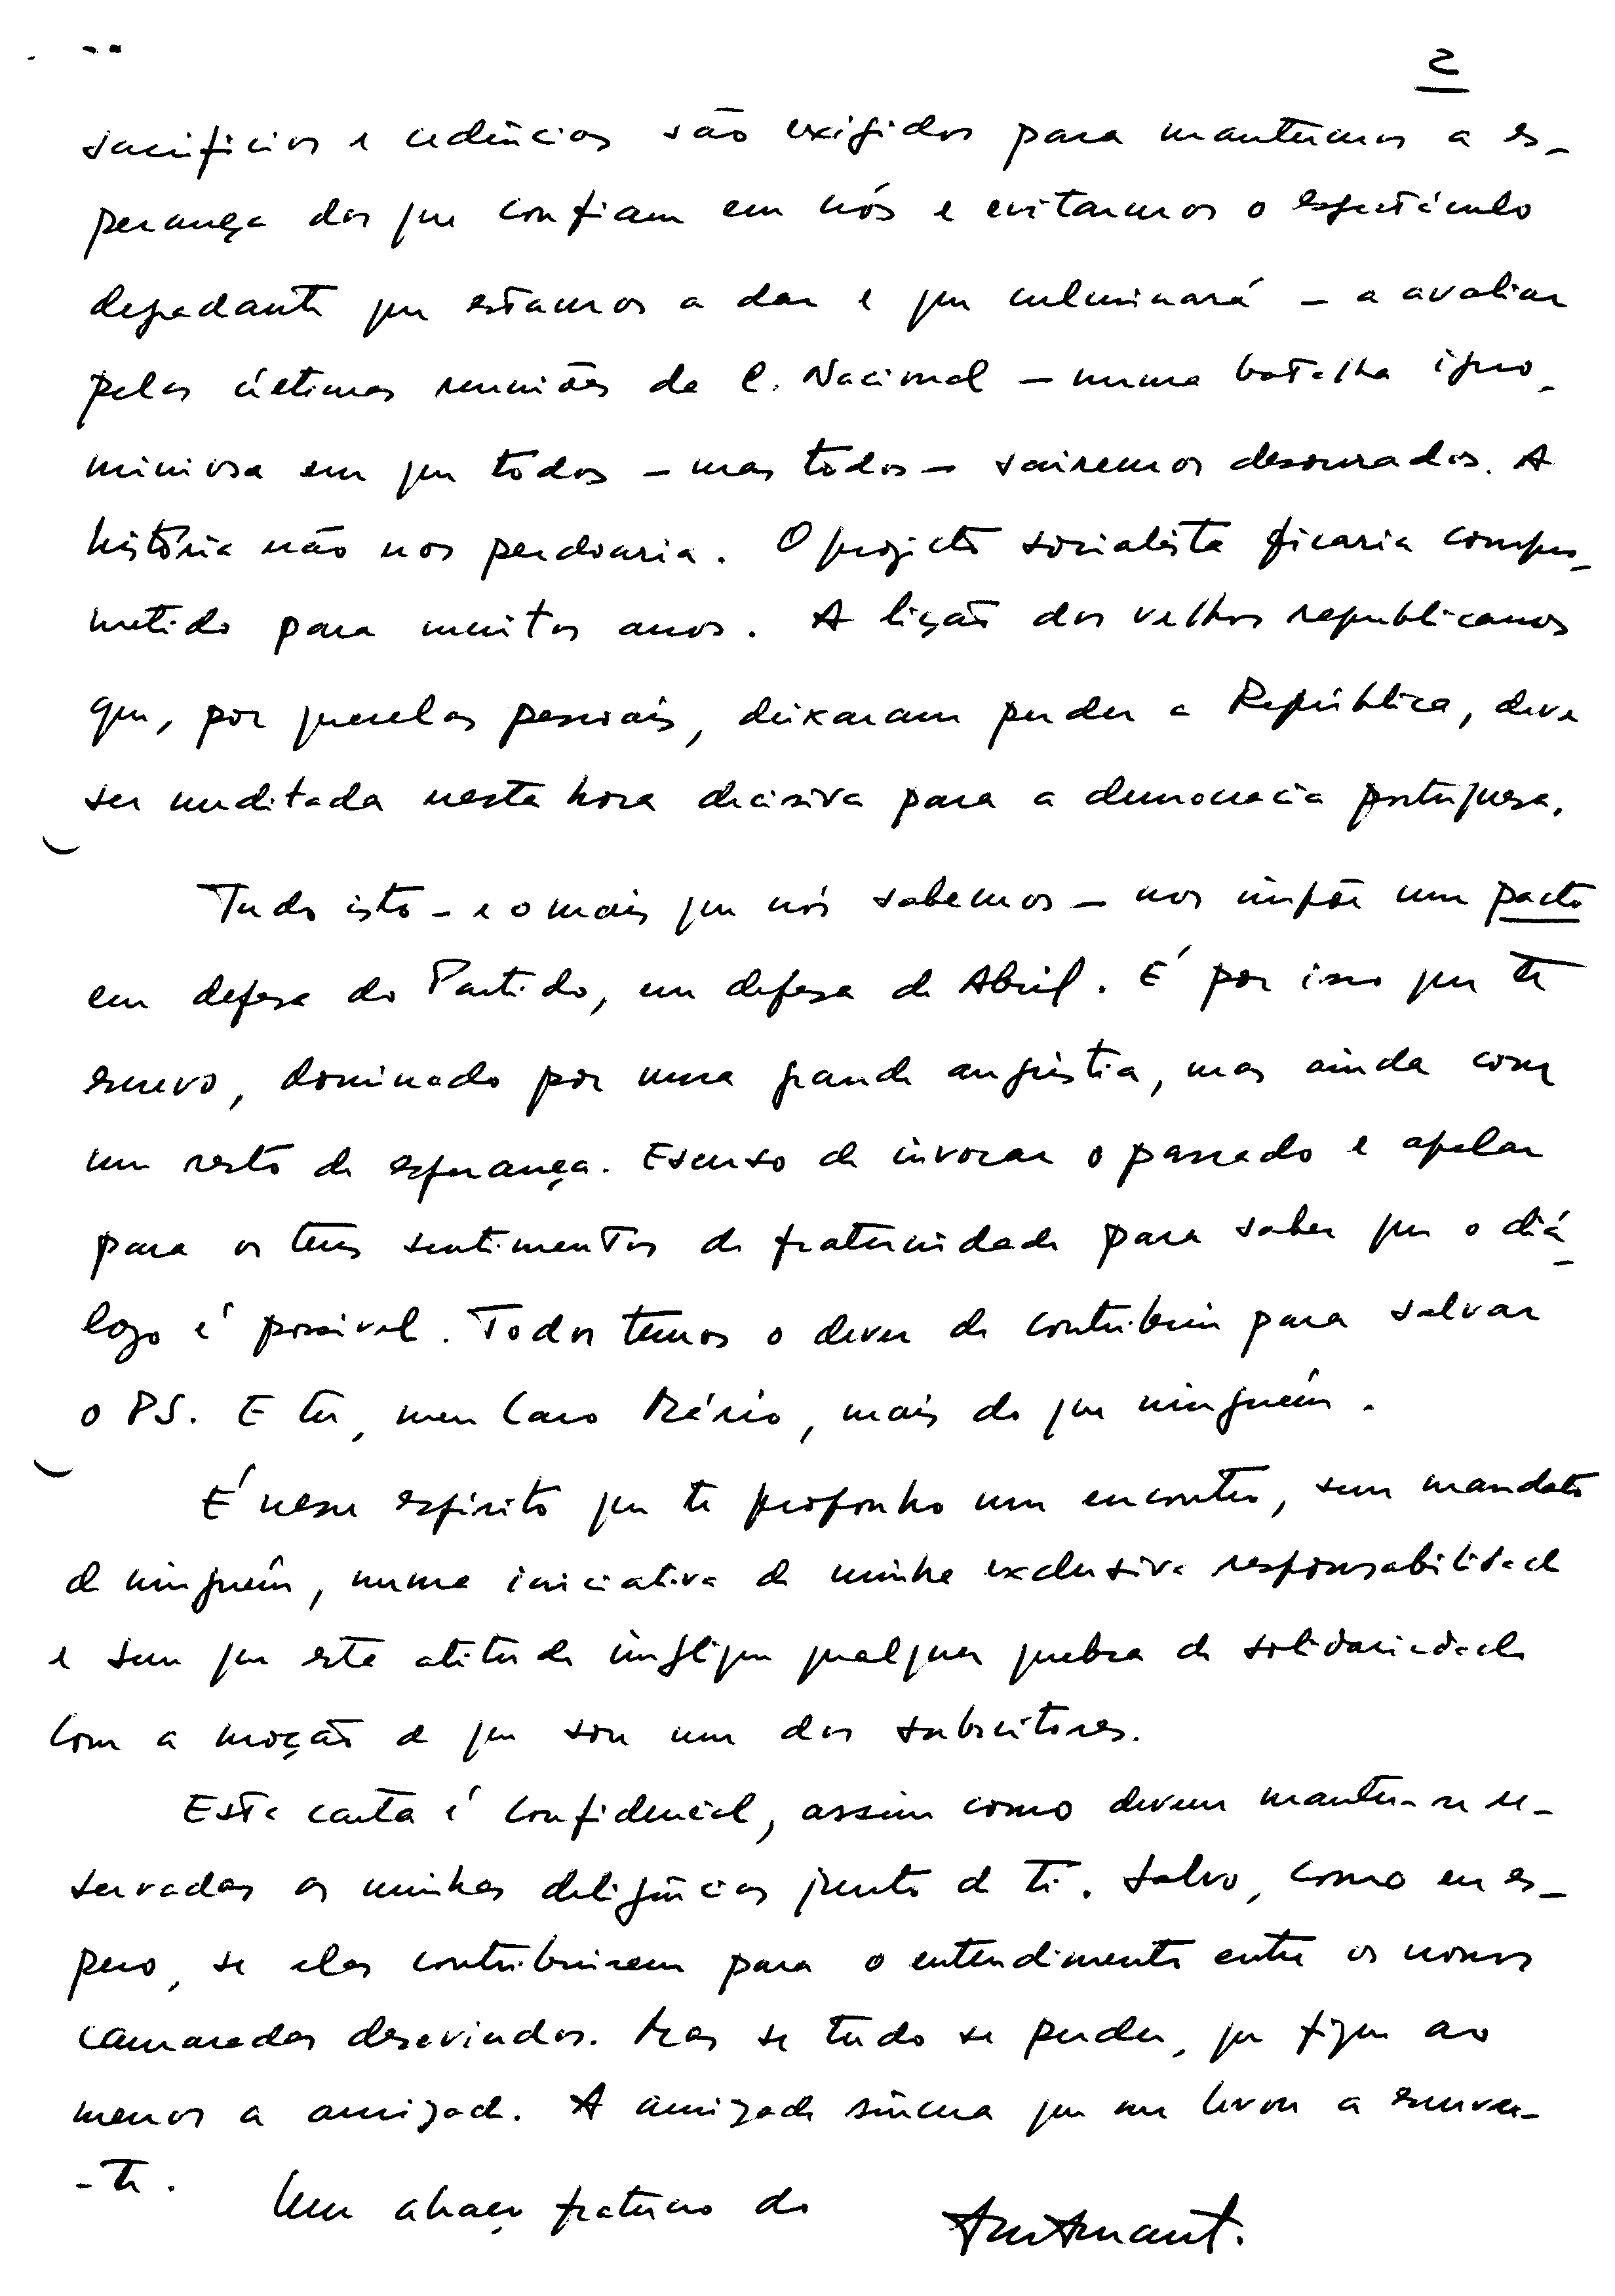 2
sacrifícios e cedências são exigidos para mantermos a es-
perança dos que confiam em nós e evitarmos o espectáculo
degradante que estamos a dar e que culminará - a avaliar
pelas últimas reuniões da C. Nacional - numa batalha igno-
miniosa em que todos - mas todos - sairemos desonrados. A
história não nos perdoaria. O projecto socialista ficaria compro-
metido para muitos anos. A lição dos velhos republicanos
que, por querelas pessoais, deixaram perder a República, deve
ser meditada nesta hora decisiva para a democracia portuguesa.
Tudo isto - e o mais que nós sabemos - nos impõe um pacto
em defesa do Partido, em defesa de Abril. É por isso que te
escrevo, dominado por uma grande angústia, mas ainda com
um resto de esperança. Escuso de invocar o passado e apelar
para os teus sentimentos de fraternidade para saber que o diá-
logo é possível. Todos temos o dever de contribuir para salvar
o PS. E tu, meu Caro Mário, mais do que ninguém.
É nesse espírito que te proponho um encontro, sem mandato
de ninguém, numa iniciativa de minha exclusiva responsabilidade
e sem que esta atitude implique qualquer quebra de solidariedade
com a moção de que sou um dos subscritores.
Esta carta é confidencial, assim como devem manter-se re-
servadas as minhas diligências junto de ti. Salvo, como eu es-
pero, se elas contribuirem para o entendimento entre os nossos
camaradas desavindos. Mas se tudo se perder, que fique ao
menos a amizade. A amizade sincera que me levou a escrever-
-te.
Um abraço fraterno do